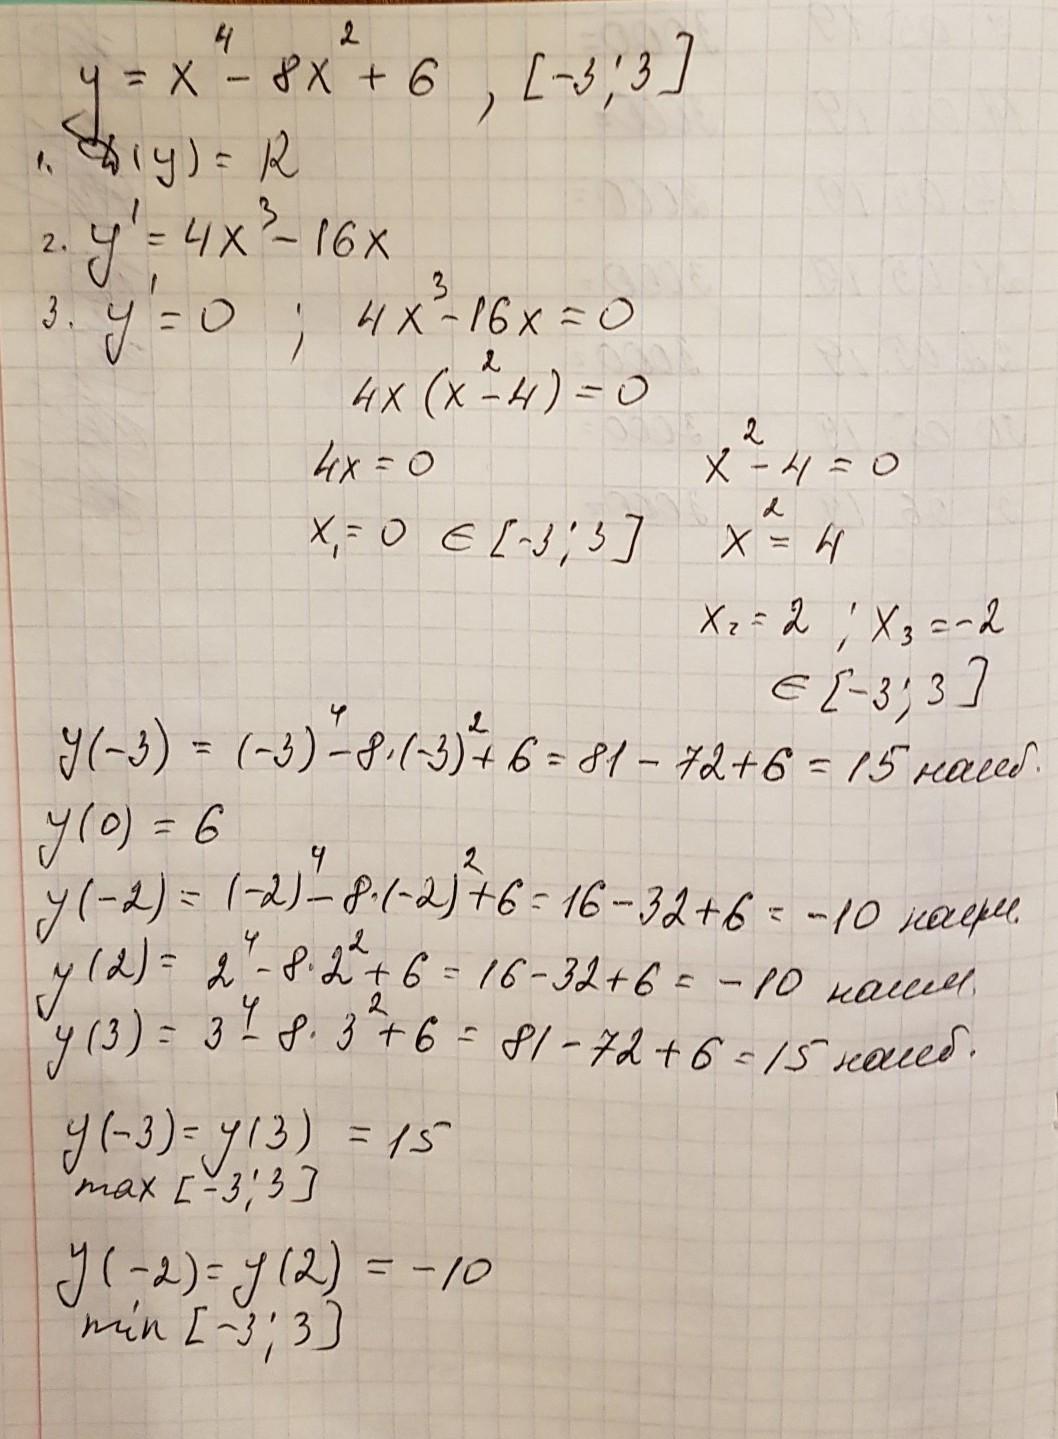 y = x⁴ - 8x² + 6 , [-3; 3]
1. D(y) = R
2. y' = 4x³ - 16x
3. y' = 0 ; 4x³ - 16x = 0
4x (x² - 4) = 0
4x = 0 x² - 4 = 0
x₁ = 0 ∈ [-3; 3] x² = 4
x₂ = 2 ; x₃ = -2
∈ [-3; 3]
y(-3) = (-3)⁴ - 8·(-3)² + 6 = 81 - 72 + 6 = 15 наиб.
y(0) = 6
y(-2) = (-2)⁴ - 8·(-2)² + 6 = 16 - 32 + 6 = -10 наим.
y(2) = 2⁴ - 8·2² + 6 = 16 - 32 + 6 = -10 наим.
y(3) = 3⁴ - 8·3² + 6 = 81 - 72 + 6 = 15 наиб.
y(-3) = y(3) = 15
max [-3; 3]
y(-2) = y(2) = -10
min [-3; 3]